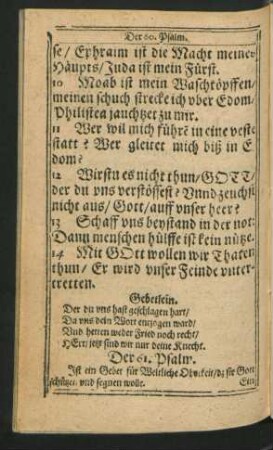 Der 60. Psalm.
se/ Ephraim ist die Macht meines
Häupts/ Juda ist mein Fürst.
10 Moab ist mein Waschtöpffen/
meinen schuch strecke ich vber Edom/
Philistea jauchtzet zu mir.
11 Wer wil mich führē in eine veste
statt? Wer gleitet mich biß in E
dom?
12 Wirstu es nicht thun/ GOTT/
der du vns verstössest? Vnnd zeuchst
nicht aus/ Gott/ auff vnser heer?
13 Schaff vns beystand in der not:
Dann menschen hülffe ist kein nütze.
14 Mit GOtt wollen wir Thaten
thun/ Er wird vnser Feinde vnter-
tretten.
Gebetlein.
Der du vns hast geschlagen hart/
Da vns dein Wort entzogen ward/
Vnd hetten weder Fried noch recht/
HErr jetz sind wir nur deine Knecht.
Der 61. Psalm.
Ist ein Gebet für Weltliche Obrckeit/ dz sie Gott
schützen vnd segnen wolle.
Ein